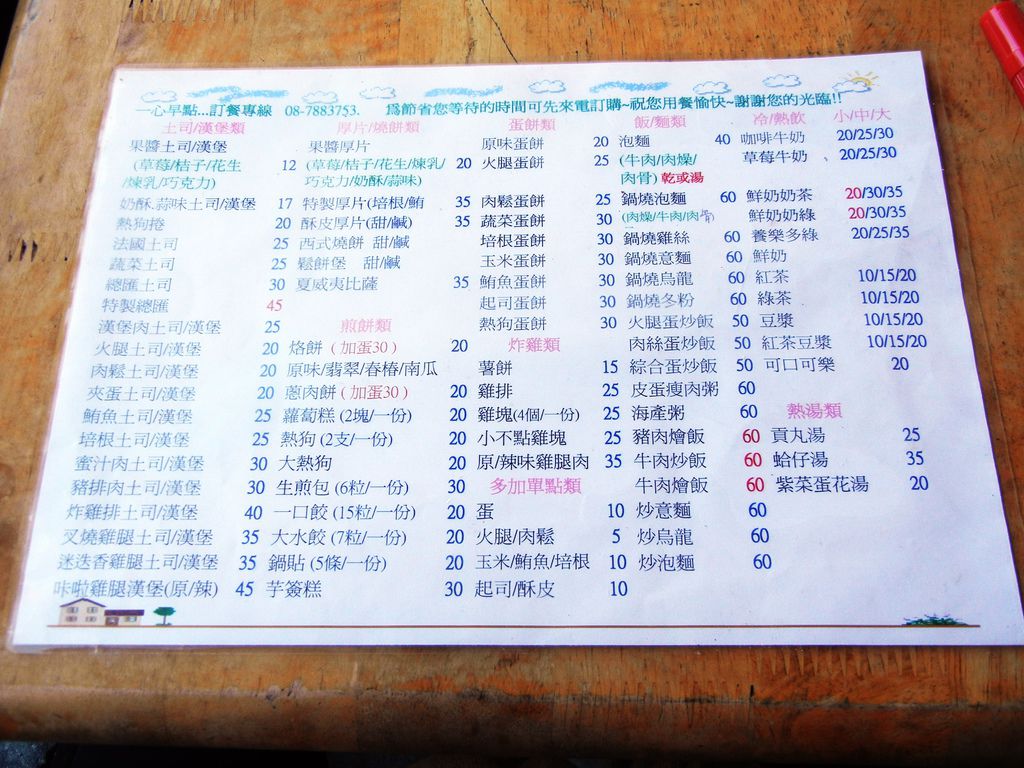 一心早點...訂餐專線 08-7883753. 爲節省您等待的時間可先來電訂購~祝您用餐愉快~謝謝您的光臨!!
土司/漢堡類
果醬土司/漢堡
(草莓/桔子/花生 12
/煉乳/巧克力)
奶酥.蒜味土司/漢堡 17
熱狗捲 20
法國土司 25
蔬菜土司 25
總匯土司 30
特製總匯 45
漢堡肉土司/漢堡 25
火腿土司/漢堡 20
肉鬆土司/漢堡 20
夾蛋土司/漢堡 20
鮪魚土司/漢堡 25
培根土司/漢堡 25
蜜汁肉土司/漢堡 30
豬排肉土司/漢堡 30
炸雞排土司/漢堡 40
叉燒雞腿土司/漢堡 35
迷迭香雞腿土司/漢堡 35
咔啦雞腿漢堡(原/辣) 45
厚片/燒餅類
果醬厚片
(草莓/桔子/花生/煉乳/ 20
巧克力/奶酥/蒜味)
特製厚片(培根/鮪 35
酥皮厚片(甜/鹹) 35
西式燒餅 甜/鹹
鬆餅堡 甜/鹹
夏威夷比薩 35
煎餅類
烙餅 ( 加蛋30 ) 20
原味/翡翠/春椿/南瓜
蔥肉餅 ( 加蛋30 ) 20
蘿蔔糕 (2塊/一份) 20
熱狗 (2支/一份) 20
大熱狗 20
生煎包 (6粒/一份) 30
一口餃 (15粒/一份) 20
大水餃 (7粒/一份) 20
鍋貼 (5條/一份) 20
芋簽糕 30
蛋餅類
原味蛋餅 20
火腿蛋餅 25
肉鬆蛋餅 25
蔬菜蛋餅 30
培根蛋餅 30
玉米蛋餅 30
鮪魚蛋餅 30
起司蛋餅 30
熱狗蛋餅 30
炸雞類
薯餅 15
雞排 25
雞塊(4個/一份) 25
小不點雞塊 25
原/辣味雞腿肉 35
多加單點類
蛋 10
火腿/肉鬆 5
玉米/鮪魚/培根 10
起司/酥皮 10
飯/麵類
泡麵 40
(牛肉/肉燥/
肉骨) 乾或湯
鍋燒泡麵 60
(肉燥/牛肉/肉骨)
鍋燒雞絲 60
鍋燒意麵 60
鍋燒烏龍 60
鍋燒冬粉 60
火腿蛋炒飯 50
肉絲蛋炒飯 50
綜合蛋炒飯 50
皮蛋瘦肉粥 60
海產粥 60
豬肉燴飯 60
牛肉炒飯 60
牛肉燴飯 60
炒意麵 60
炒烏龍 60
炒泡麵 60
冷/熱飲 小/中/大
咖啡牛奶 20/25/30
草莓牛奶 20/25/30
鮮奶奶茶 20/30/35
鮮奶奶綠 20/30/35
養樂多綠 20/25/35
鮮奶
紅茶 10/15/20
綠茶 10/15/20
豆漿 10/15/20
紅茶豆漿 10/15/20
可口可樂 20
熱湯類
貢丸湯 25
蛤仔湯 35
紫菜蛋花湯 20